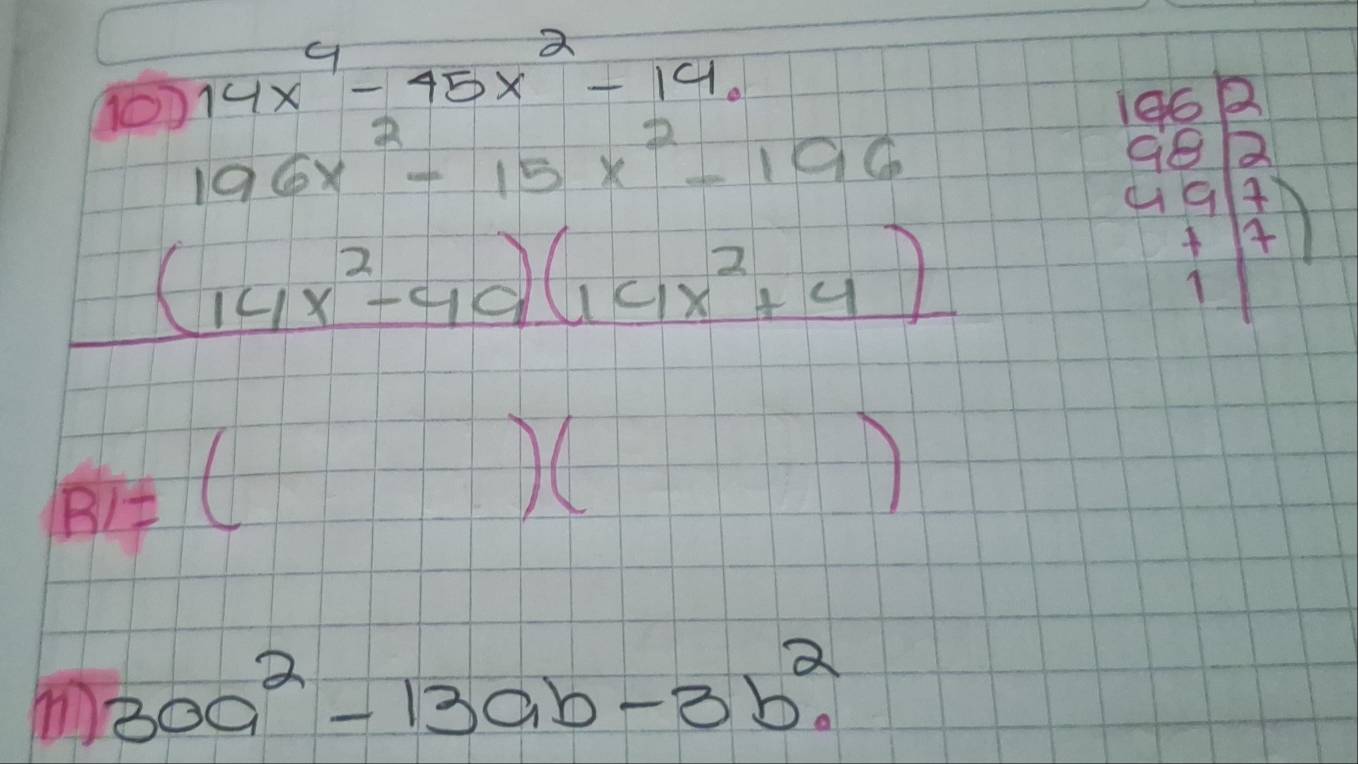 10) 14x⁴ - 45x² - 14.
196x² - 15x² - 196
(14x² - 49)(14x² + 4)
196 | 2
98 | 2
49 | 7
7 | 7
1 |
R/= ( )( )
11) 30a² - 13ab - 3b².